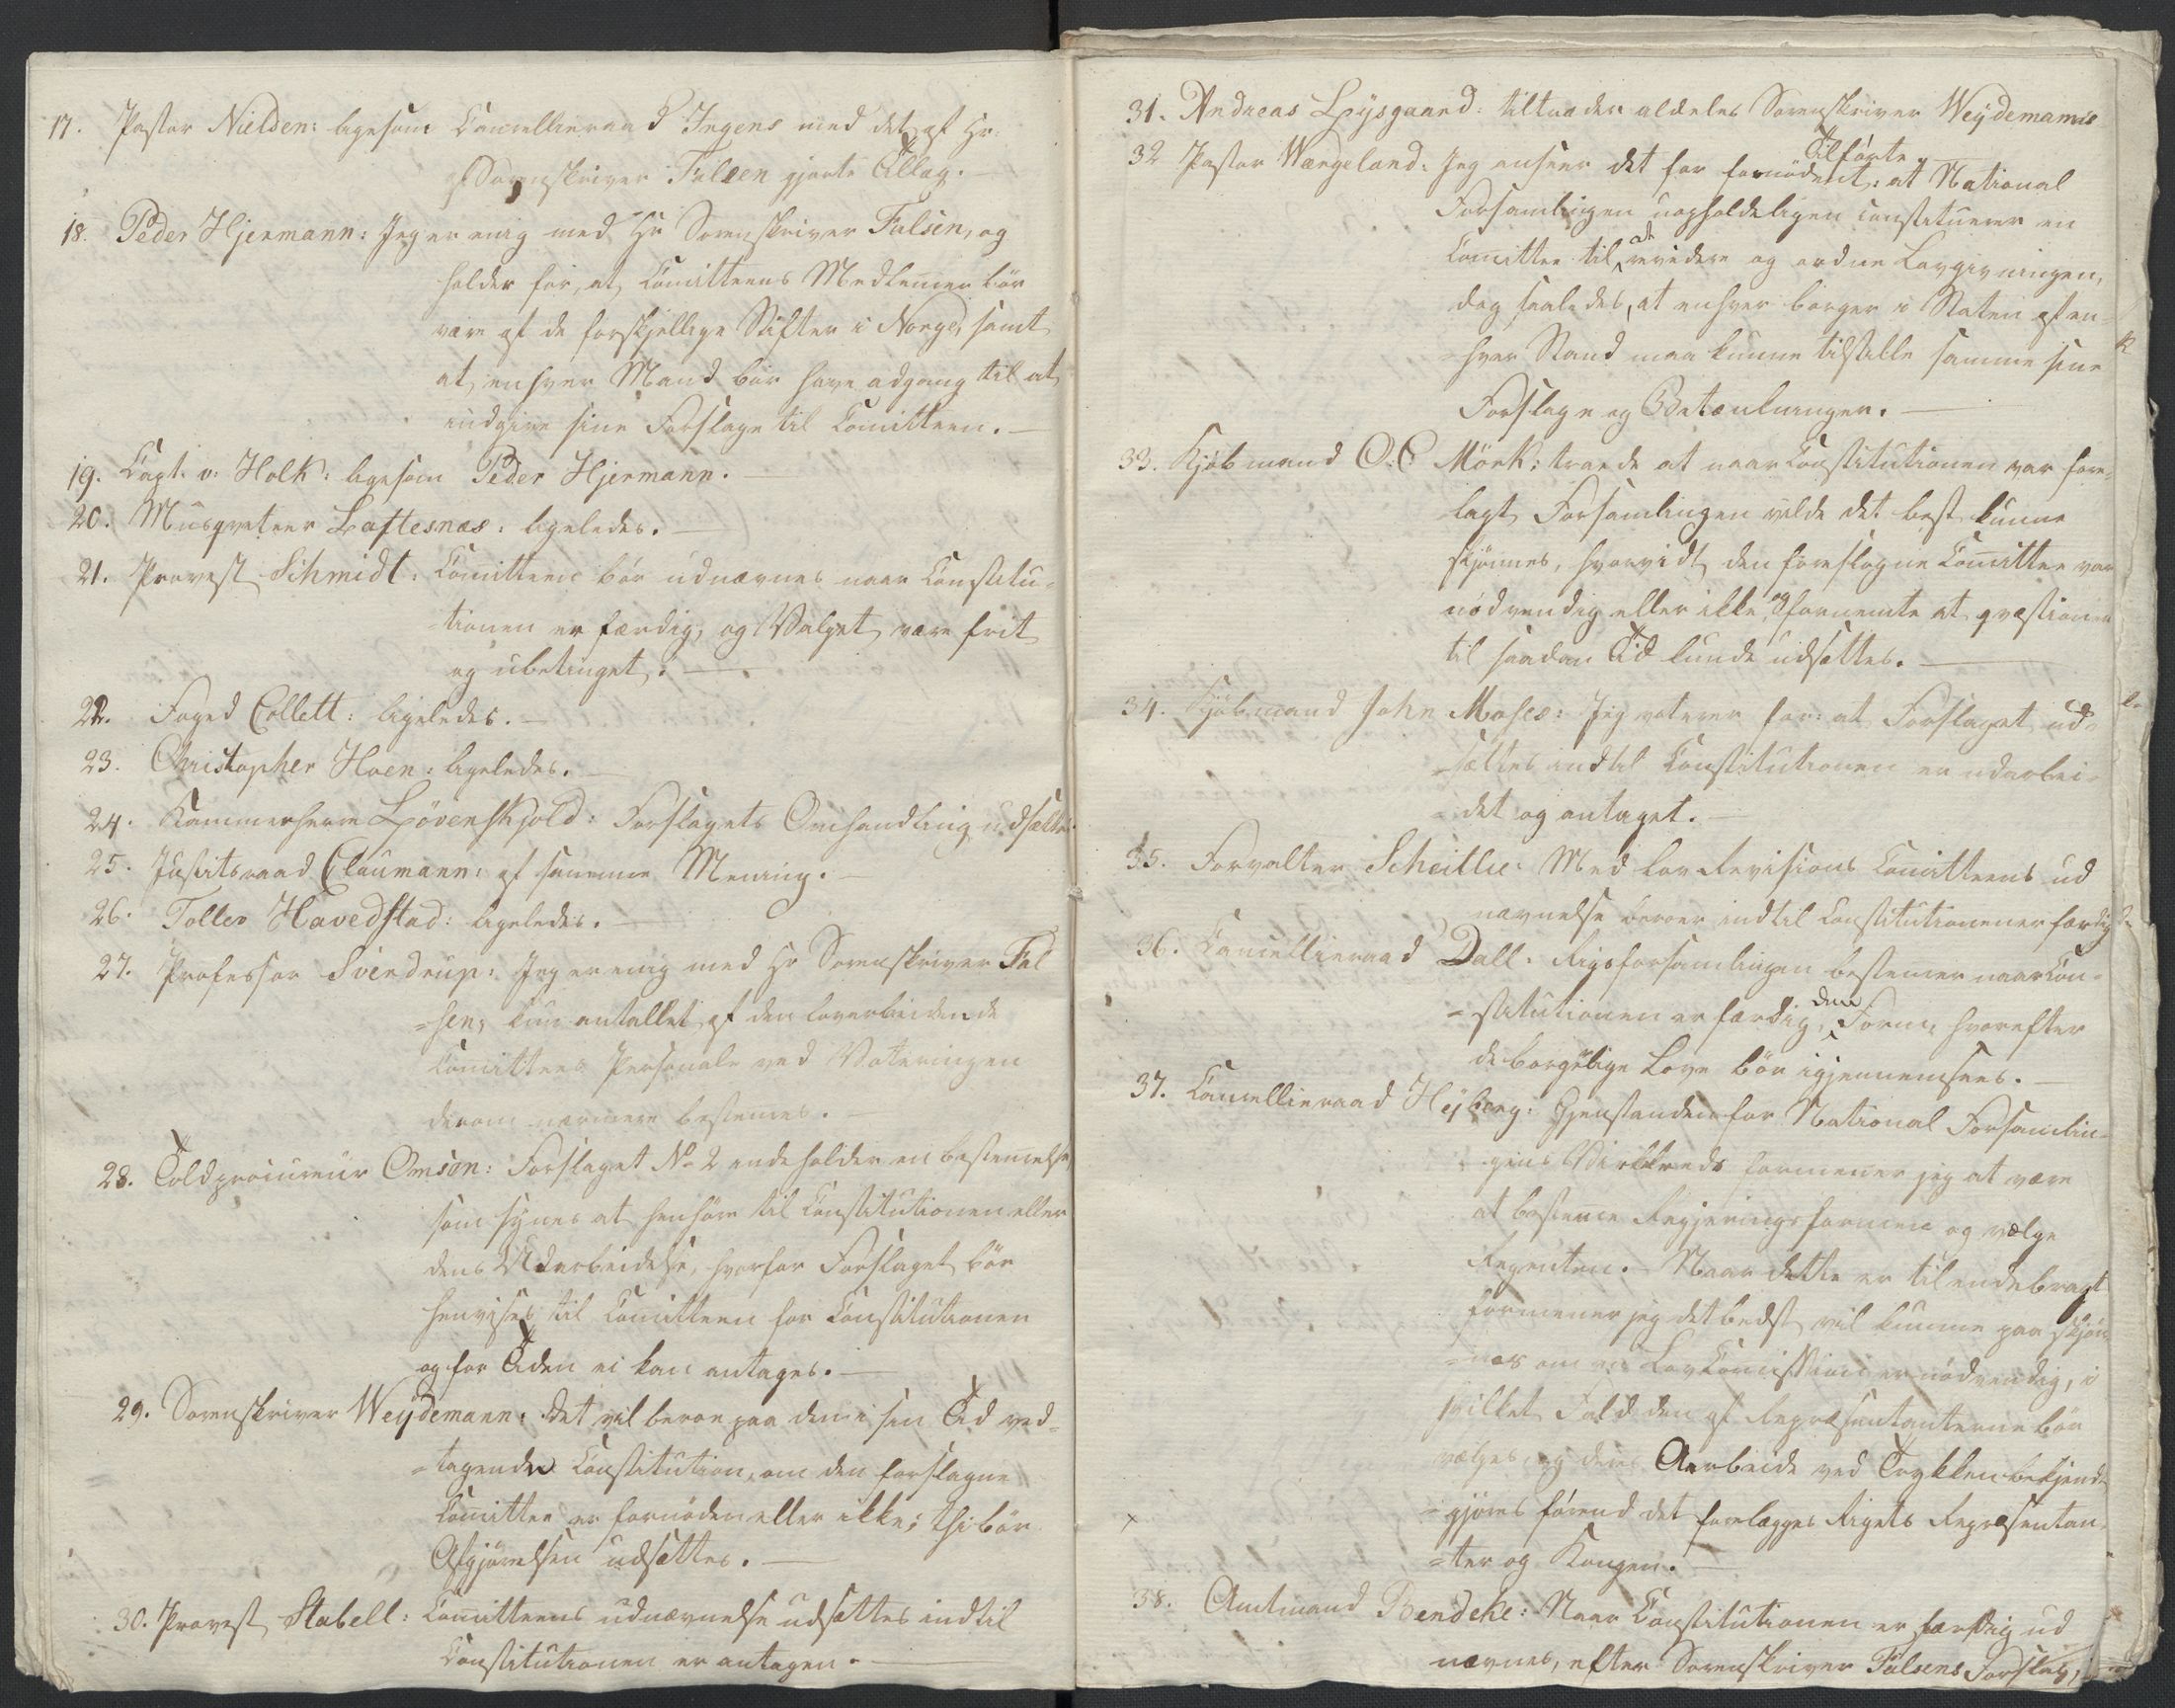 17. Pastor Nielsen: ligesom Cancellieraad Irgens med det af Hr.
Sorenskriver Falsen gjorte Tillæg. —
18. Peder Hjermann: Jeg er enig med Hr Sorenskriver Falsen, og
holder for, at Comitteens Medlemer bör
være af de forskjellige Stifter i Norge, samt
at enhver Mand bör have adgang til at
indgive sine Forslage til Comitteen. —
19. Capt. v. Holck: ligesom Peder Hjermann. —
20. Musqveteer Loftesnæs: ligeledes. —
21. Provst Schmidt: Comitteen bör udnævnes naar Constitu-
-tionen er færdig, og Valget være frit
og ubetinget. —
22. Foged Collett: ligeledes. —
23. Christopher Hoen: ligeledes. —
24. Kammerherre Lövenskjold: Forslagets Omhandling udsættes.
25. Justitsraad Claumann: af samme Mening. —
26. Toller Havedstad: ligeledes. —
27. Professor Sverdrup: Jeg er enig med Hr Sorenskriver Fal
-sen, kun antallet af den lovarbeidende
Comittees Personale ved Voteringen
derom nærmere bestemes. —
28. Toldprocureur Omsen: Forslaget No 2 indeholder en bestemelse
som synes at henhöre til Constitutionen eller
dens Udarbeidelse, hvorfor Forslaget bör
henvises til Comitteen for Constitutionen
og for Tiden ei kan antages. —
29. Sorenskriver Weydemann: Det vil beroe paa den i sin Tid ved-
-tagende Constitution, om den forslagne
Comittee er fornöden eller ikke; thi bör
Afgjörelsen udsættes. —
30. Provst Stabell: Comitteens udnævnelse udsættes indtil
Constitutionen er antagen. —
31. Andreas Lysgaard: tiltræder aldeles Sorenskriver Weydemanns
Tilförte. —
32 Pastor Wergeland: Jeg anseer det for fornödent: at National
Forsamlingen uopholdeligen constituerer en
Comittee til at revidere og ordne Lovgivningen,
dog saaledes, at enhver borger i Staten af en-
-hver Stand maa kunne tilstille samme sine
Forslage og Betænkninger. —
33. Kjöbmand O. C Mörk: troede at naar Constitutionen var fore-
lagt Forsamlingen vilde det best kunne
skjönnes, hvorvidt den foreslagne Comittee var
nödvendig eller ikke, og formente at qvæstionen
til saadan Tid kunde udsættes. —
34. Kjöbmand John Moses: Jeg voterer for: at Forslaget ud-
-sættes indtil Constitutionen er udarbei-
-det og antaget. —
35. Forvalter Scheitlie: Med Lov Revisions Comitteens ud
nævnelse beroer indtil Constitutionen er færdig
36. Cancellieraad Dall: Rigsforsamlingen bestemer naar Con-
-stitutionen er færdig, den Form, hvorefter
de borgelige Love bör igjennemsees. —
37. Cancellieraad Heyberg: Gjenstanden for National Forsamlin-
gens Virkkreds formener jeg at være
at bestemme Regjeringsformen og vælge
Regenten. — Naar dette er tilendebragt
formener jeg det bedst vil kunne paa skjön
-nes om en Lov Comission er nödvendig, i
hvilket Fald den af Repræsentanterne bör
vælges, og dens Arbeide ved Trykken bekjendt
-gjöres förend det forelægges Rigets Repræsentan-
-ter og Kongen. —
38. Amtmand Bendeke: Naar Constitutionen er færdig ud
nævnes, efter Sorenskriver Falsens Forslag,